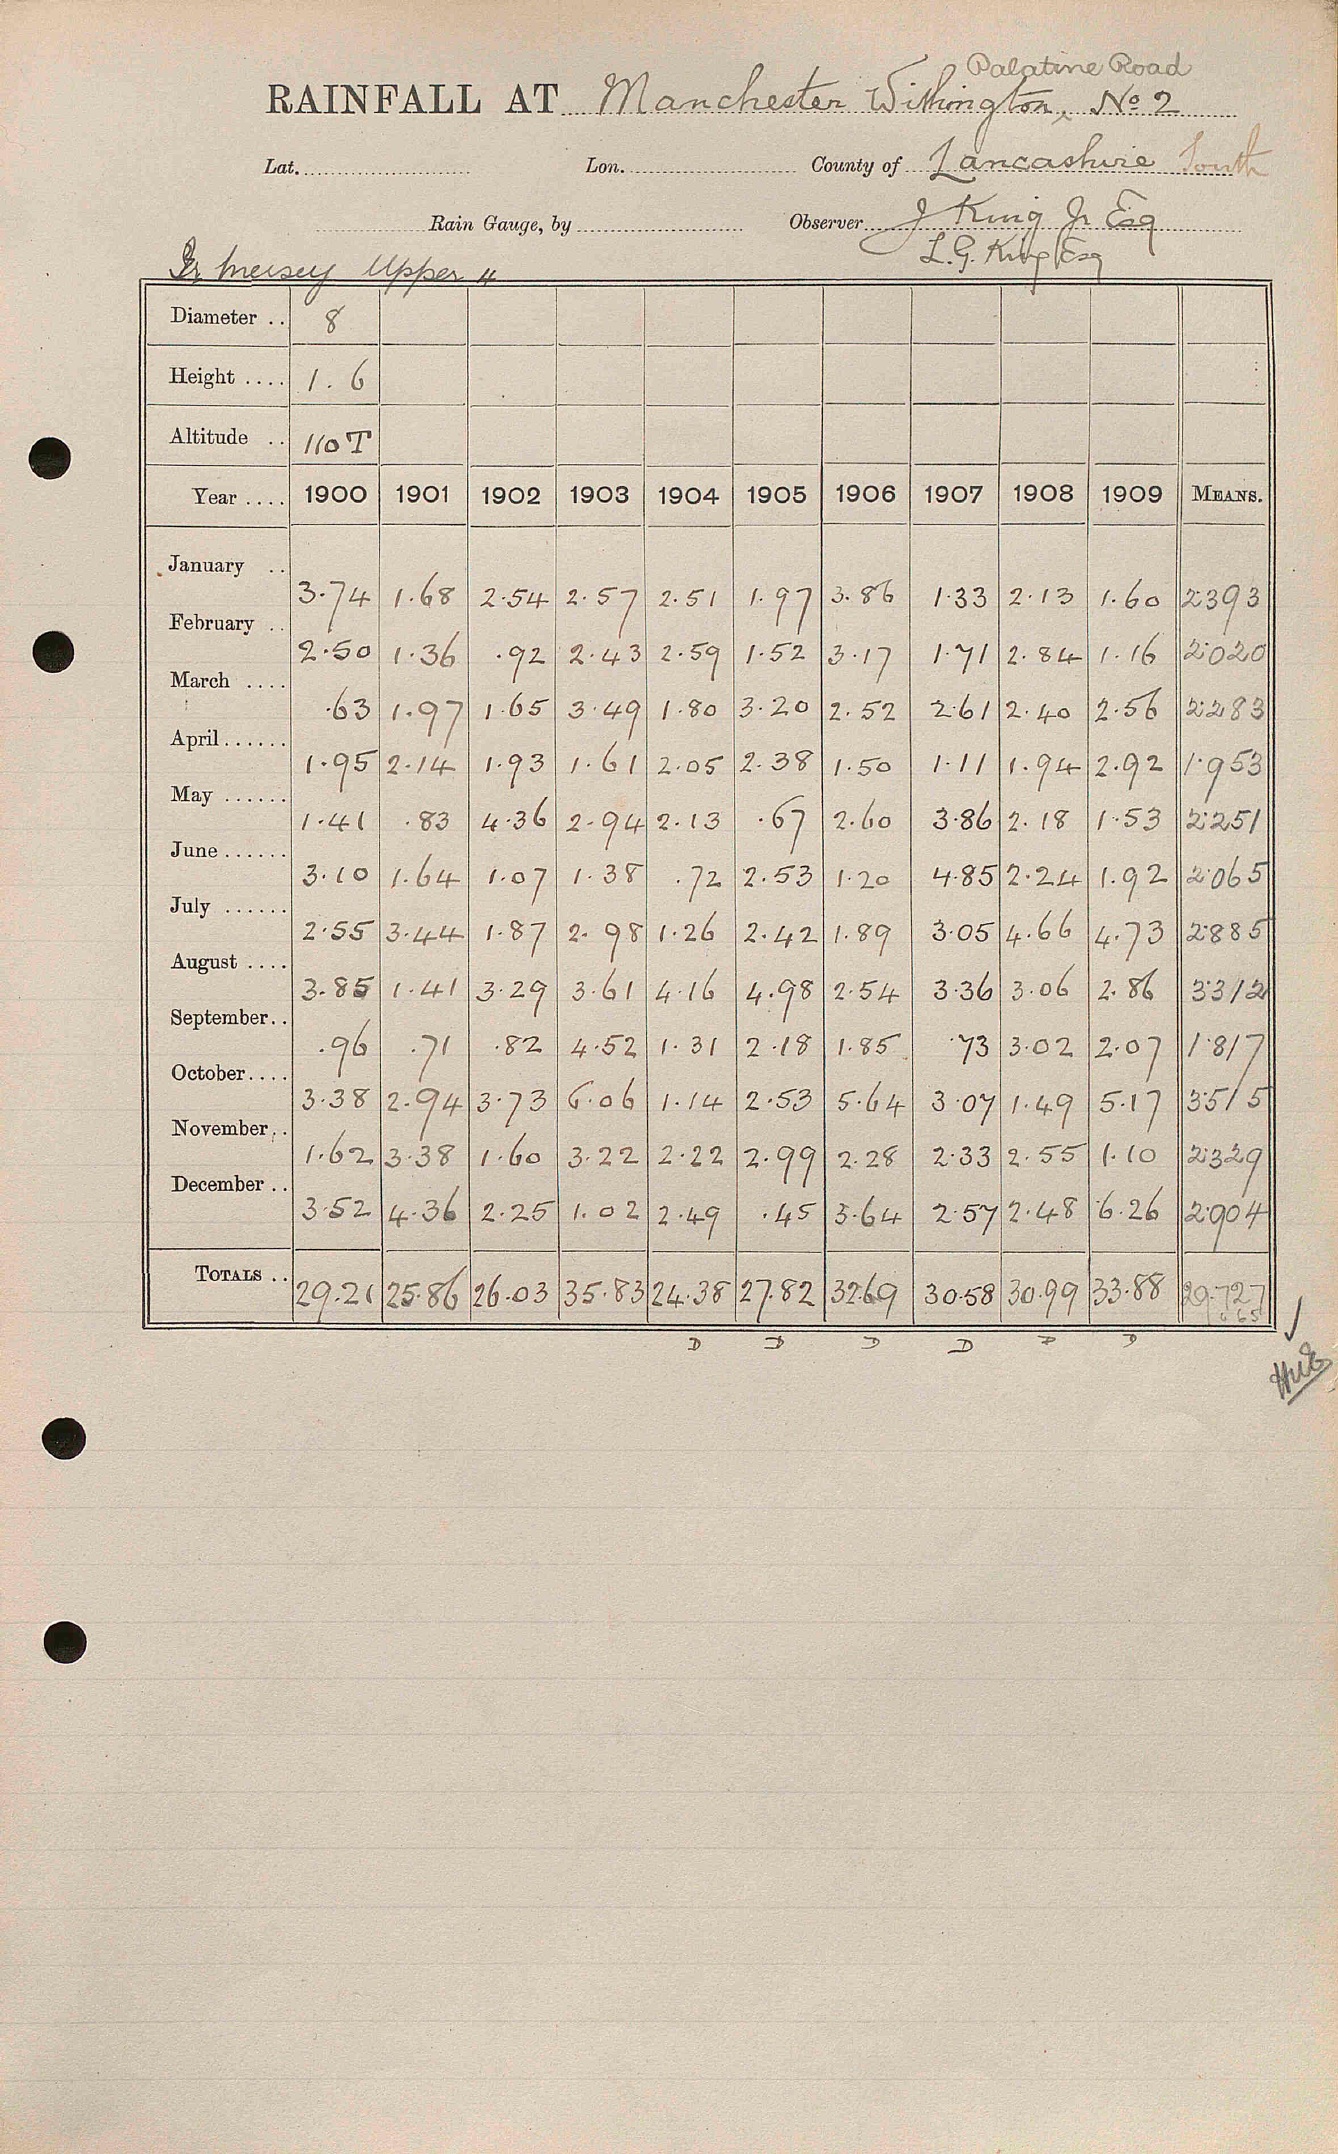 Palatine Road
RAINFALL AT Manchester Withington, No 2
Lat. Lon. County of Lancashire South
Rain Gauge, by Observer J King Jr Esq
L.G. King Esq
Mersey Upper "
Diameter .. 8
Height .... 1.6
Altitude .. 110 T
Year .... 1900 1901 1902 1903 1904 1905 1906 1907 1908 1909 MEANS.
January .. 3.74 1.68 2.54 2.57 2.51 1.97 3.86 1.33 2.13 1.60 2.393
February .. 2.50 1.36 .92 2.43 2.59 1.52 3.17 1.71 2.84 1.16 2.020
March .... .63 1.97 1.65 3.49 1.80 3.20 2.52 2.61 2.40 2.56 2.283
April...... 1.95 2.14 1.93 1.61 2.05 2.38 1.50 1.11 1.94 2.92 1.953
May ...... 1.41 .83 4.36 2.94 2.13 .67 2.60 3.86 2.18 1.53 2.251
June...... 3.10 1.64 1.07 1.38 .72 2.53 1.20 4.85 2.24 1.92 2.065
July ...... 2.55 3.44 1.87 2.98 1.26 2.42 1.89 3.05 4.66 4.73 2.885
August .... 3.85 1.41 3.29 3.61 4.16 4.98 2.54 3.36 3.06 2.86 3.312
September.. .96 .71 .82 4.52 1.31 2.18 1.85 .73 3.02 2.07 1.817
October.... 3.38 2.94 3.73 6.06 1.14 2.53 5.64 3.07 1.49 5.17 3.515
November.. 1.62 3.38 1.60 3.22 2.22 2.99 2.28 2.33 2.55 1.10 2.329
December .. 3.52 4.36 2.25 1.02 2.49 .45 3.64 2.57 2.48 6.26 2.904
TOTALS .. 29.21 25.86 26.03 35.83 24.38 27.82 32.69 30.58 30.99 33.88 29.727
D D D D D D